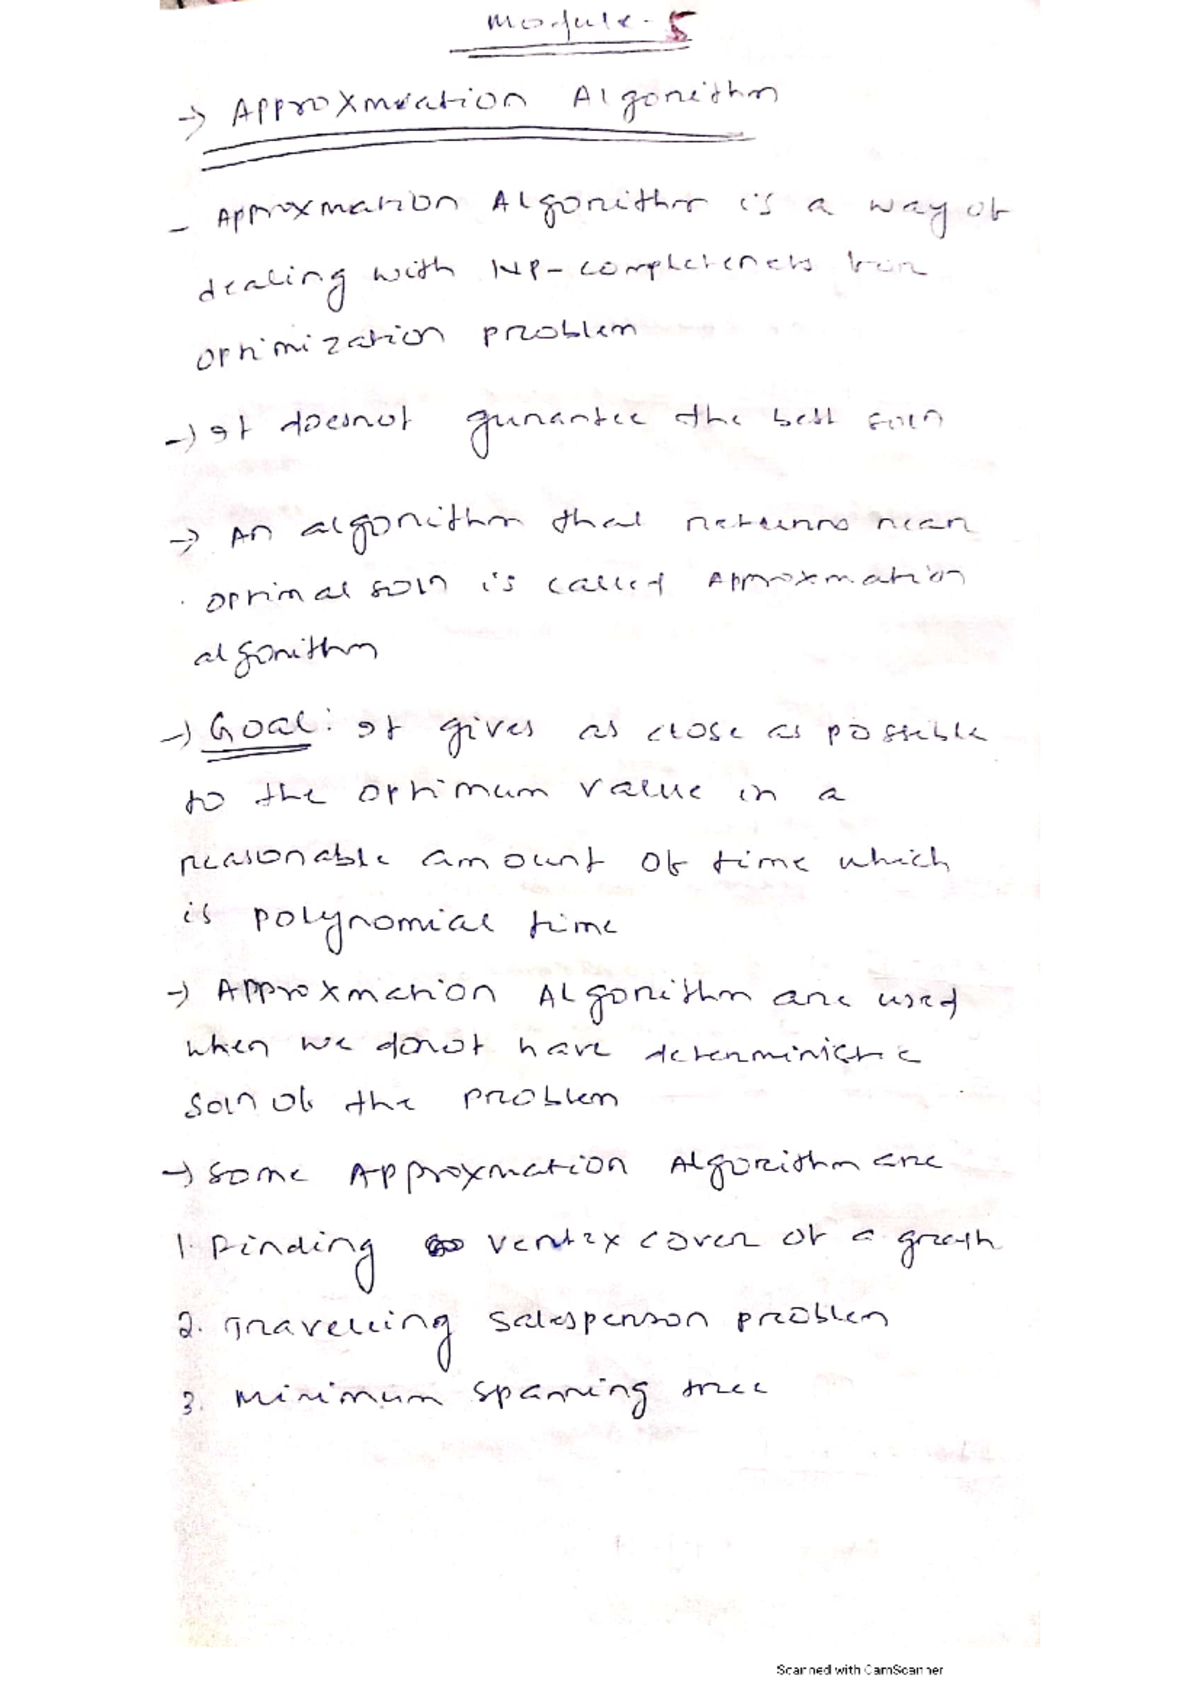 Module-5
→ Approxmation Algorithm
- Approxmation Algorithm is a way of
dealing with NP-completeness for
optimization problem
→ It doesnot gunantee the best soln
→ An algorithm that returns near
optimal soln is called Approxmation
algorithm
→ Goal: It gives as close as possible
to the optimum value in a
reasonable amount of time which
is polynomial time
→ Approxmation Algorithm are used
when we donot have deterministic
soln of the problem
→ Some Approxmation Algorithm are
1. Finding vertex cover of a graph
2. Travelling salesperson problem
3. Minimum spanning tree
Scanned with CamScanner